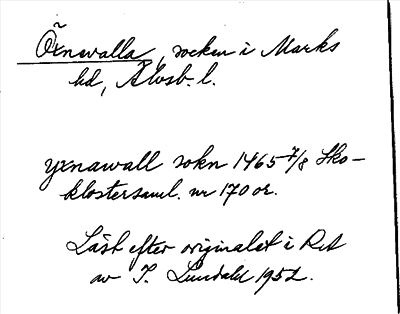 Öxnevalla, socken i Marks
hd, Älvsb. l.
yxnawall sokn 1465 7/8 Sko-
klostersaml. nr 170 or.
Läst efter originalet i RA
av I. Lundahl 1951.